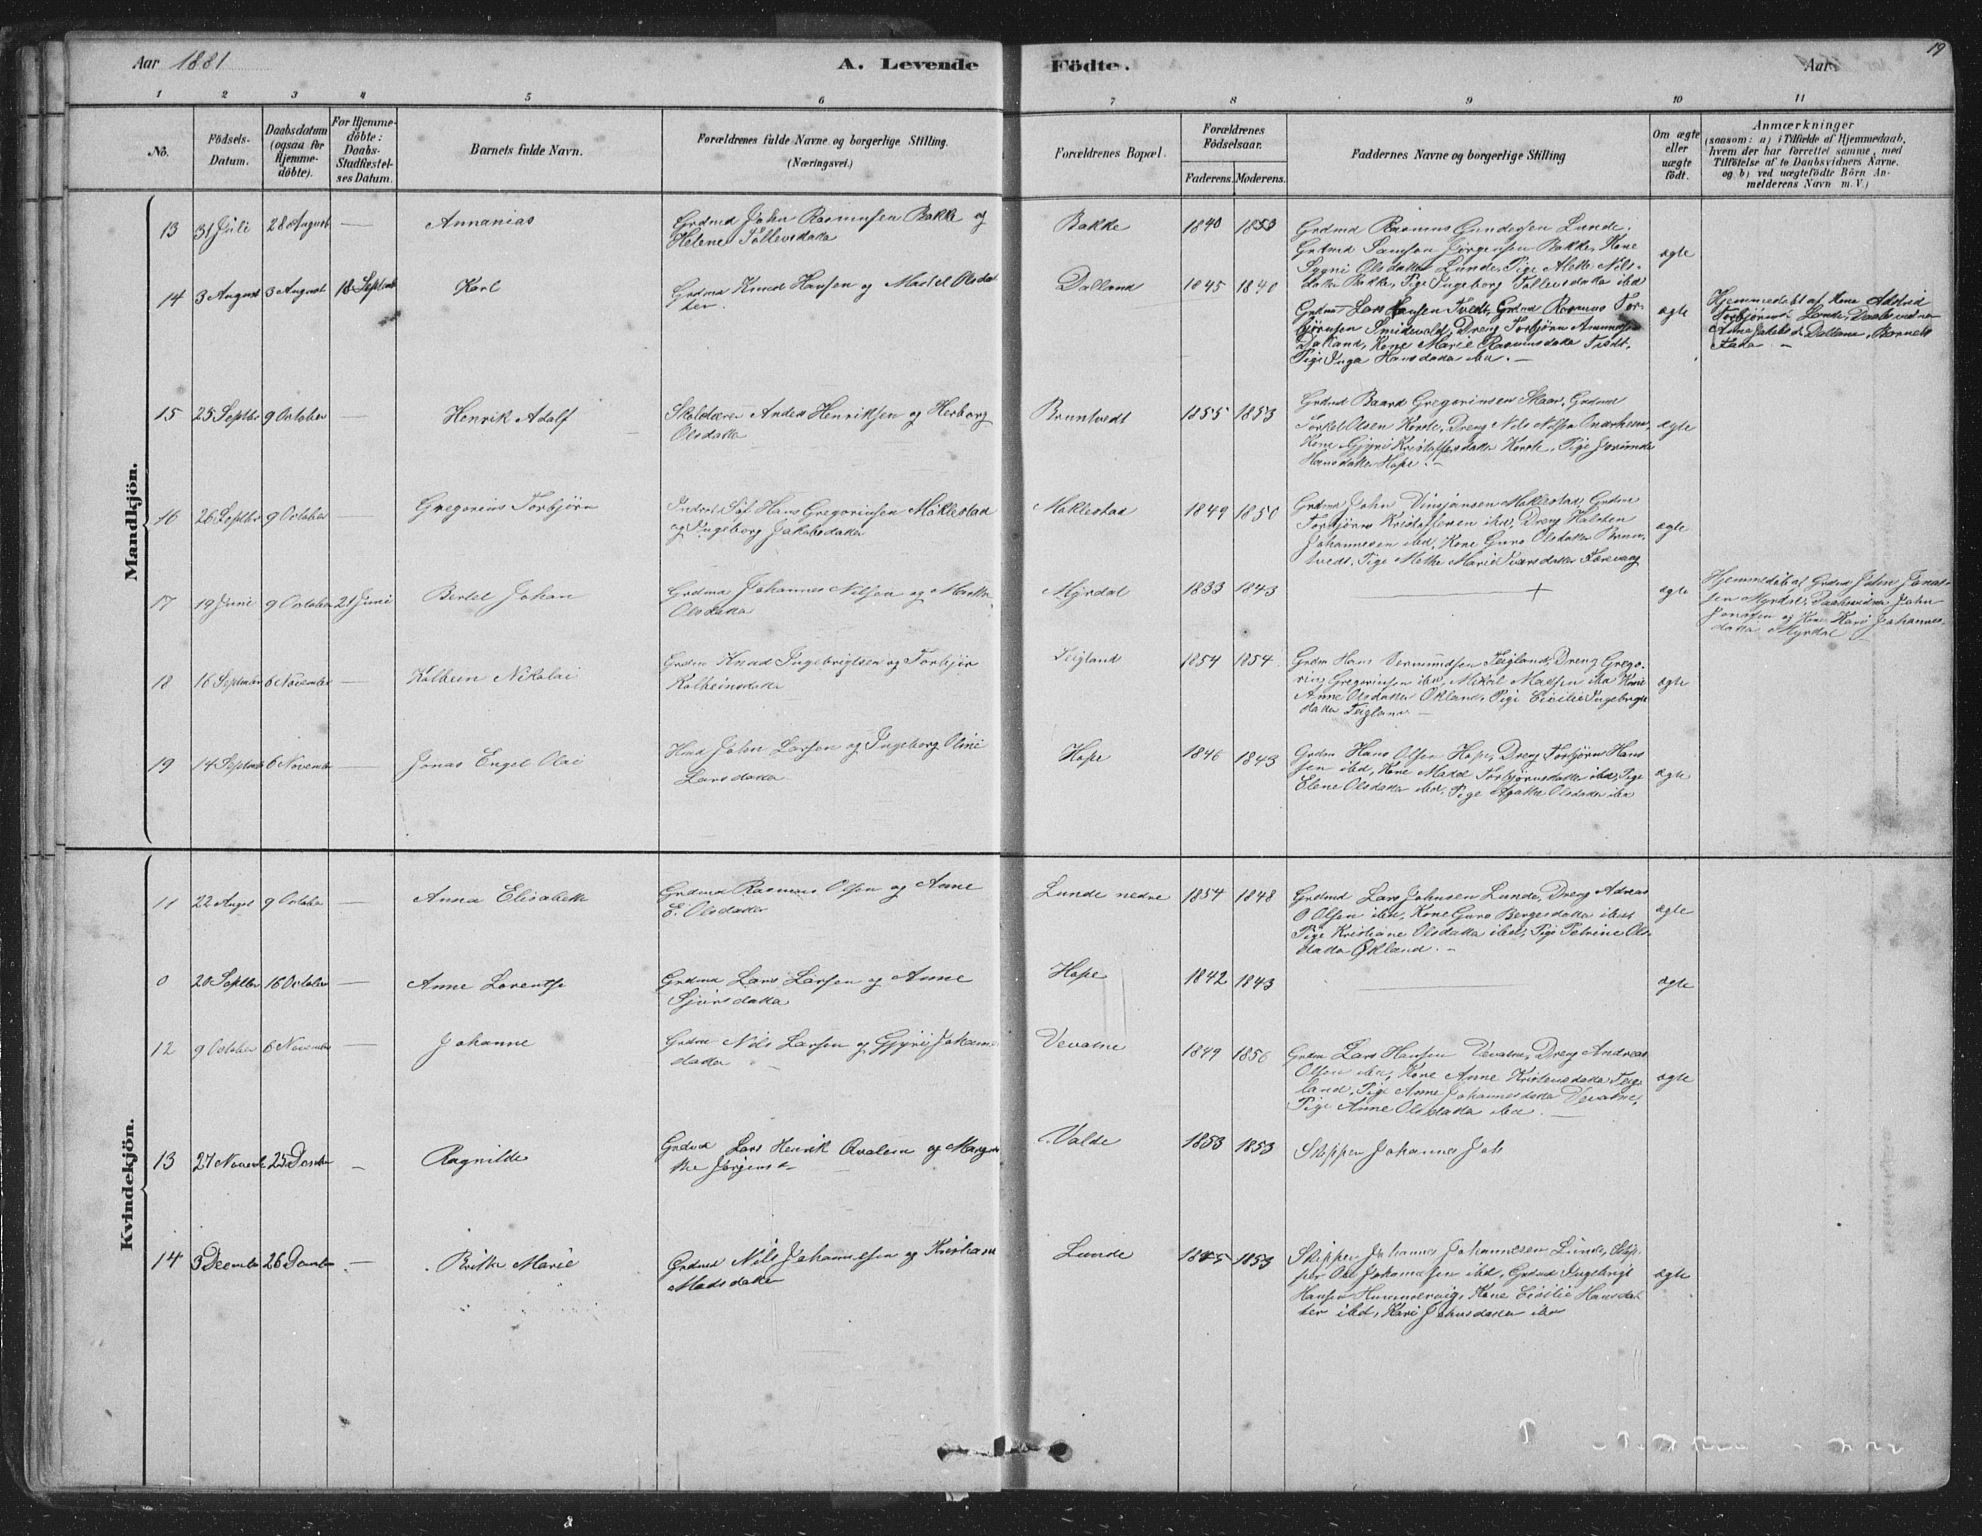 Aar 1881
A. Levende Födte.
Aar
19
1 2 3 4 5 6 7 8 9 10 11
No.
Födsels-Datum.
Daabsdatum (ogsaa for Hjemme-döbte).
For Hjemme-döbte: Daabs-Stadfæstel-ses Datum.
Barnets fulde Navn.
Forældrenes fulde Navne og borgerlige Stilling. (Næringsvei.)
Forældrenes Bopæl.
Forældrenes Födselsaar.
Faderens. Moderens.
Faddernes Navne og borgerlige Stilling
Om ægte eller uægte födt.
Anmærkninger
(saasom: a) i Tilfælde af Hjemmedaab,
hvem der har forrettet samme, med
Tilföielse af to Daabsvidners Navne.
og b) ved uægtefödte Börn An-
melderens Navn m. V.)
Mandkjön.
13 31 Juli 28 August — Annanias
Grdmd John Rasmusen Bakke og
Helene Tollevsdatter
Bakke 1840 1853
Grdmd Rasmus Gundersen Lunde.
Grdmd Samson Jørgensen Bakke, Kone
Sygni Olsdatter Lunde, Pige Mette Nils-
datter Bakke, Pige Ingeborg Tollevsdatter ibid
ægte
14 3 August 3 August 18 Septmb Karl
Grdmd Knud Hansen og Madel Olsdat
ter.
Dalland 1845 1840
Grdmd Lars Hansen Tvedt, Grdmd Rasmus Tor-
bjørnsen Smidevold, Dreng Torbjørn Amundsen
Dalland, Kone Marie Rasmusdatter Tvedt,
Pige Inga Hansdatter ibd. —
ægte
Hjemmedøbt af Kone Astrid
Torbjørnsd. Lunde, Daabsvidner
Anne Jakobsd. Dalland, Barnets
Fader. —
15 25 Septbr 9 October — Henrik Adolf
Skolelærer Anders Henriksen og Herborg
Olsdatter
Bruntvedt 1855 1853
Grdmd Baard Gregoriusen Skaar, Grdmd
Torkel Olsen Korde, Dreng Nils Nilsen Onarheim,
Kone Gjyri Kristoffersdatter Korde, Pige Jorunde
Hansdatter Hope. —
ægte
16 26 Septbr 9 October Gregorius Torbjørn
Hans Gregoriusen Møklestad
og Ingeborg Jakobsdatter
Møklestad 1849 1850
Grdmd John Vinsjansen Møklestad, Grdmd
Torbjørn Kristoffersen ibid, Dreng Halsten
Johannesen ibd, Kone Guro Olsdatter Brun-
tvedt, Pige Mette Marie Ivarsdatter
ægte
17 19 Juni 9 October 21 Juni Bertel Johan
Grdmd Johannes Nilsen og Marthe
Olsdatter
Myrdal 1833 1843
+
ægte
Hjemmedøbt af Grdmd John Jonas-
sen Myrdal, Daabsvidner John
Jonassen og Kone Kari Johannes-
datter Myrdal
18 16 Septmber 6 November Kolbein Nikolai
Grdm Knud Ingebrigtsen og Torbjør
Kolbeinsdatter
Teigland 1854 1854
Grdm Hans Vermundsen Teigland, Dreng Grego-
rius Gregoriusen ibd, Mikal Madsen ibd Kone
Anne Olsdatter Økland, Pige Cicilie Ingebrigts
datter Teigland —
ægte
19 14 Septmb 6 November — Jonas Engel Olai
Hmd John Larsen og Ingeborg Oline
Larsdatter
Hope 1846 1843
Grdm Hans Olsen Hope, Dreng Torbjørn Hans
sen ibd, Kone Madel Torbjørnsdatter ibd, Pige
Elene Olsdatter ibd, Pige Agathe Olsdatter ibd
ægte
Kvindekjön.
11 22 Augst 9 October — Anna Elisabeth
Grdmd Rasmus Olsen og Anne
E. Olsdatter
Lunde nedre 1854 1848
Grdmd Lars Johnsen Lunde, Dreng Adreas
O Olsen ibd, Kone Guro Bergesdatter ibid
Pige Kristiane Olsdatter ibd, Pige Petrine Ols-
datter Økland. —
ægte
0 20 Septbr 16 October — Anne Lorentse
Grdmd Lars Larsen og Anne
Sjursdatter
Hope 1842 1843
ægte
12 9 October 6 November — Johanne
Grdm Nils Larsen og Gjyri Johannes
datter
Vevatne 1849 1856
Grdm Lars Hansen Vevatne, Dreng Andreas
Olsen ibd, Kone Anne Kristensdatter Teig-
land, Pige Anne Johannesdatter Vevatne,
Pige Anne Olsdatter ibd. —
ægte
13 27 Novemb 25 Decmbr — Ragnilde
Grdmd Lars Henrik Qvalem og Margre-
the Jørgensdr
Valde 1853 1853
Skipper Johannes Joh
14 3 Decembr 26 Decmbr — Brithe Marie
Grdmd Nils Johannesen og Kristiane
Madsdatter
Lunde 1845 1853
Skipper Johannes Johannesen Lunde, Skip-
per Ole Johannesen ibd, Grdmd Ingebrigt
Hansen Hummervig, Kone Cicilie Hansdat-
ter ibd, Kari Johnsdatter ibd
ægte